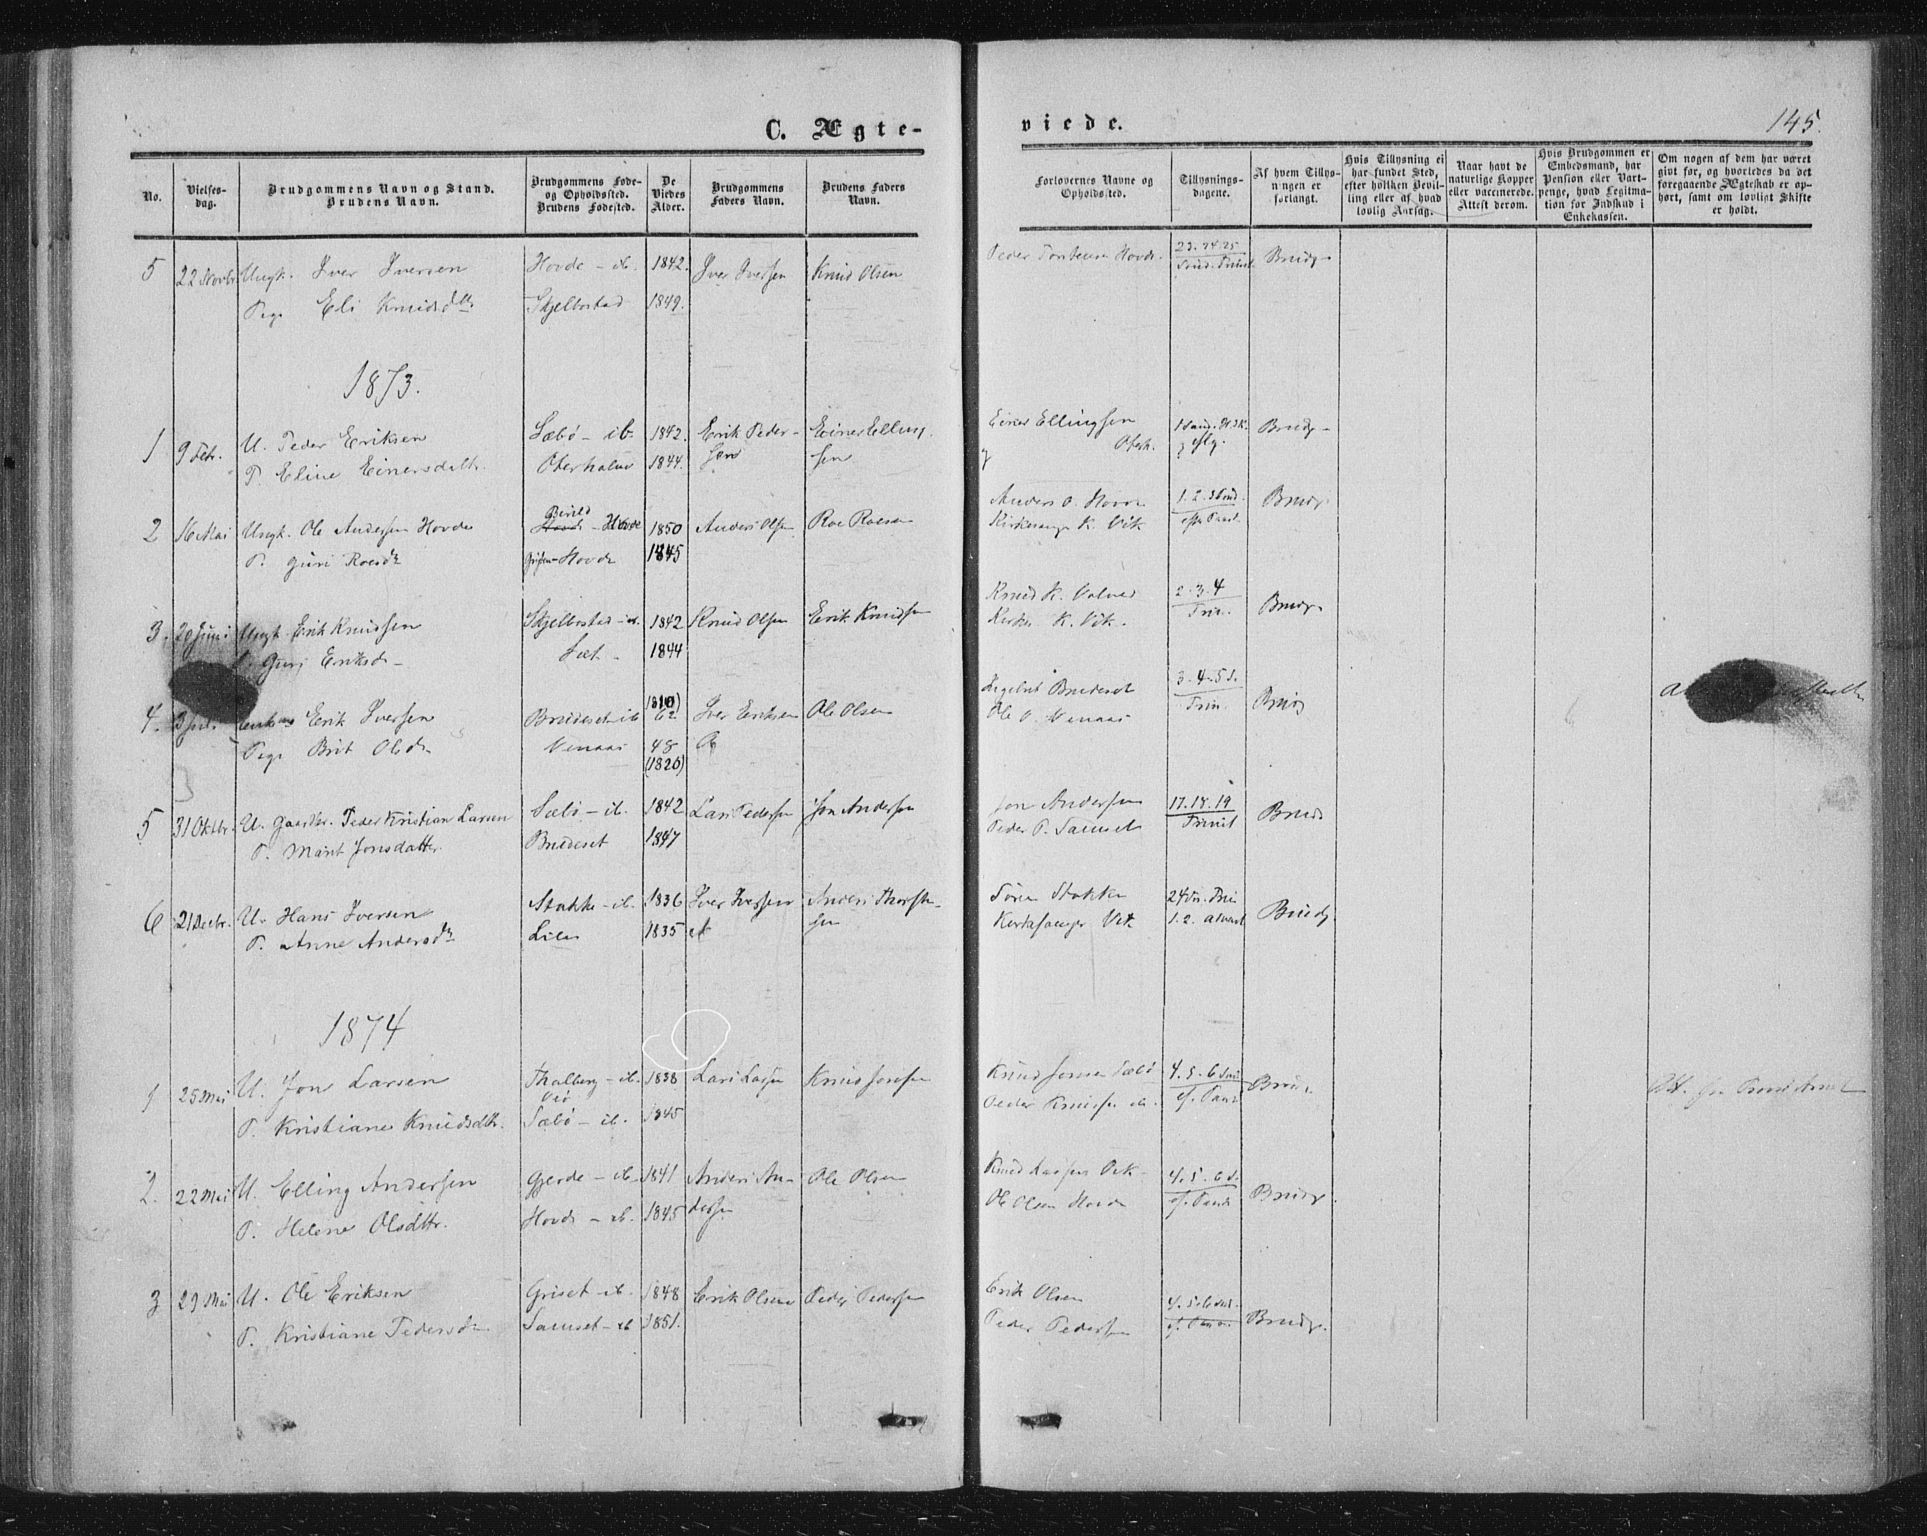 C. Ægte-
viede.
145.
No.
Vielses-
dag.
Brudgommens Navn og Stand.
Brudens Navn.
Brudgommens Føde-
og Opholdssted.
Brudens Fødested.
De
Viedes
Alder.
Brudgommens
Faders Navn.
Brudens Faders
Navn.
Forlovernes Navne og
Opholdssted.
Tillysnings-
dagene.
Af hvem Tillys-
ningen er
forlangt.
Hvis Tillysning ei
har fundet Sted,
efter hvilken Bevil-
ling eller af hvad
lovlig Aarsag.
Naar havt de
naturlige Kopper
eller vaccinerede.
Attest derom.
Hvis Brudgommen er
Embedsmand, har
Pension eller Vart-
penge, hvad Legitima-
tion for Indskud i
Enkekassen.
Om nogen af dem har været
givt før, og hvorledes da det
foregaaende Ægteskab er op-
hørt, samt om lovligt Skifte
er holdt.
5 22 Novbr. Ungk. Iver Iversen Hovde - ib. 1842. Iver Iversen Knud Olsen Peder Hovde. 23. 24. 25 Brudg.
Pige Eli Knudsdtr Skjelbostad 1849. Trinit.
1873.
1 9 Febr. U. Peder Eriksen Sæbö - ib. 1842. Erik Peder- Einer Elling- Einer Ellingsen Brudg.
P. Eline Einersdattr. Oterholm 1844. sen sen Oterh.
2 16 Mai Ungk. Ole Andersen Hovde - Hovde 1850 Anders Olsen Roe Roesen Anders O. Hovde 1. 2. 3 Brudg.
P. Guri Roesdr Hovde 1845 Kirkesanger K. Vik
3. 20 Juni Ungk. Erik Knudsen Skjelbostad - ib. 1842 Knud Olsen Erik Knudsen Knud K. 2. 3. 4 Brudg.
P. Guri Eriksdr Sæt 1844 K. Vik. Trin.
(1810)
4. Juli Erik Iversen Brudeset - ib 62 Iver Eriksen Ole Olsen Brudeset 3. 4. 5 Brudg
Pige Brit Olsdr Venaas 48 Ole O. Venaas Trin.
(1820)
5 31 Oktbr. U. Gaardbr. Peder Kristian Larsen Sæbö - ib. 1842 Lars Pedersen Jon Andersen Jon Andersen 17. 18. 19 Brudg
P. Marit Jonsdatter. Brudeset 1847 Peder P. Samset Trinit
6 21 Decbr. U. Hans Iversen Stokke - ib. 1836 Iver Iversen Anders Thorste- Sören Stokke 24 Trin Brudg
P. Anne Andersdr Lilen 1835 sen Kirkesanger Vik 1. 2. advent
1874
1 25 Mai U. Jon Larsen Thalberg - ib. 1838 Lars Larsen Knud Jonsen Knud Jonsen Sæbö 4. 5. 6 Brudg.
P. Kristiane Knudsdtr. Sæbö - ib. 1845 Peder Knudsen
2. 22 Mai U. Elling Andersen Gjerde - ib. 1841 Anders An- Ole Olsen Knud Larsen Vik 4. 5. 6 Brudg.
P. Helene Olsdttr. Hovde - ib. 1845 dersen Ole Olsen Hovde
3 29 Mai U. Ole Eriksen Griset - ib. 1848 Erik Olsen Peder Pedersen Erik Olsen 4. 5. 6 Brudg.
P. Kristiane Pedersdr Samset - ib 1851. Peder Pedersen